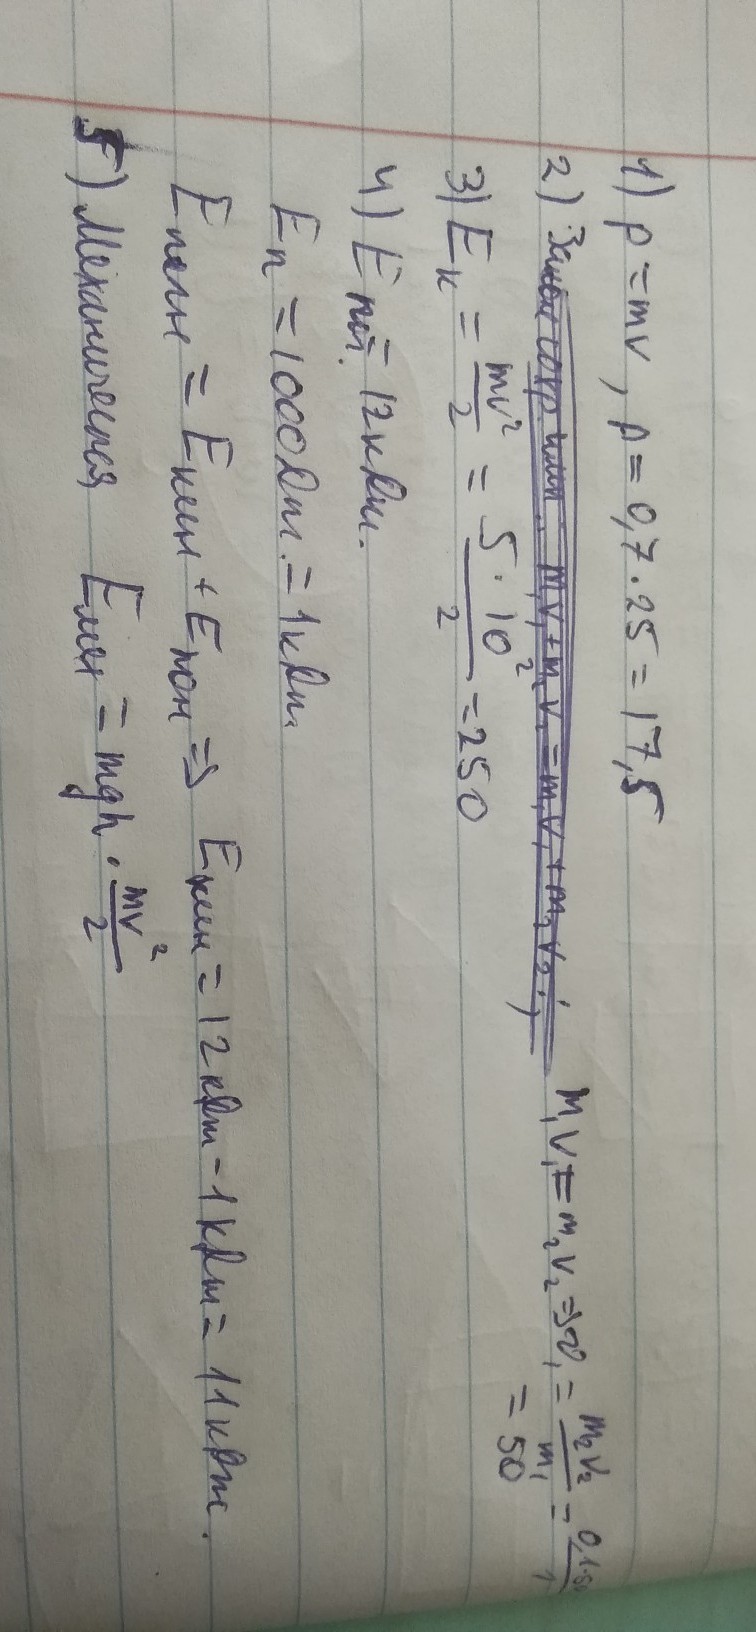 1) p = mv, p = 0,7 · 25 = 17,5
2) m₁v₁ + m₂v₂ = m₁v₁ + m₂v₂; m₁v₁ = m₂v₂ ⇒ v₁ = m₂v₂/m₁ = 0,1·50/1
= 50
3) Eк = mv²/2 = 5·10²/2 = 250
4) Eпол. = 12 кДж.
Eп = 1000Дж. = 1кДж.
Eполн = Eкин + Eпот ⇒ Eкин = 12кДж - 1кДж = 11кДж.
5) Механическая Eмех = mgh · mv²/2